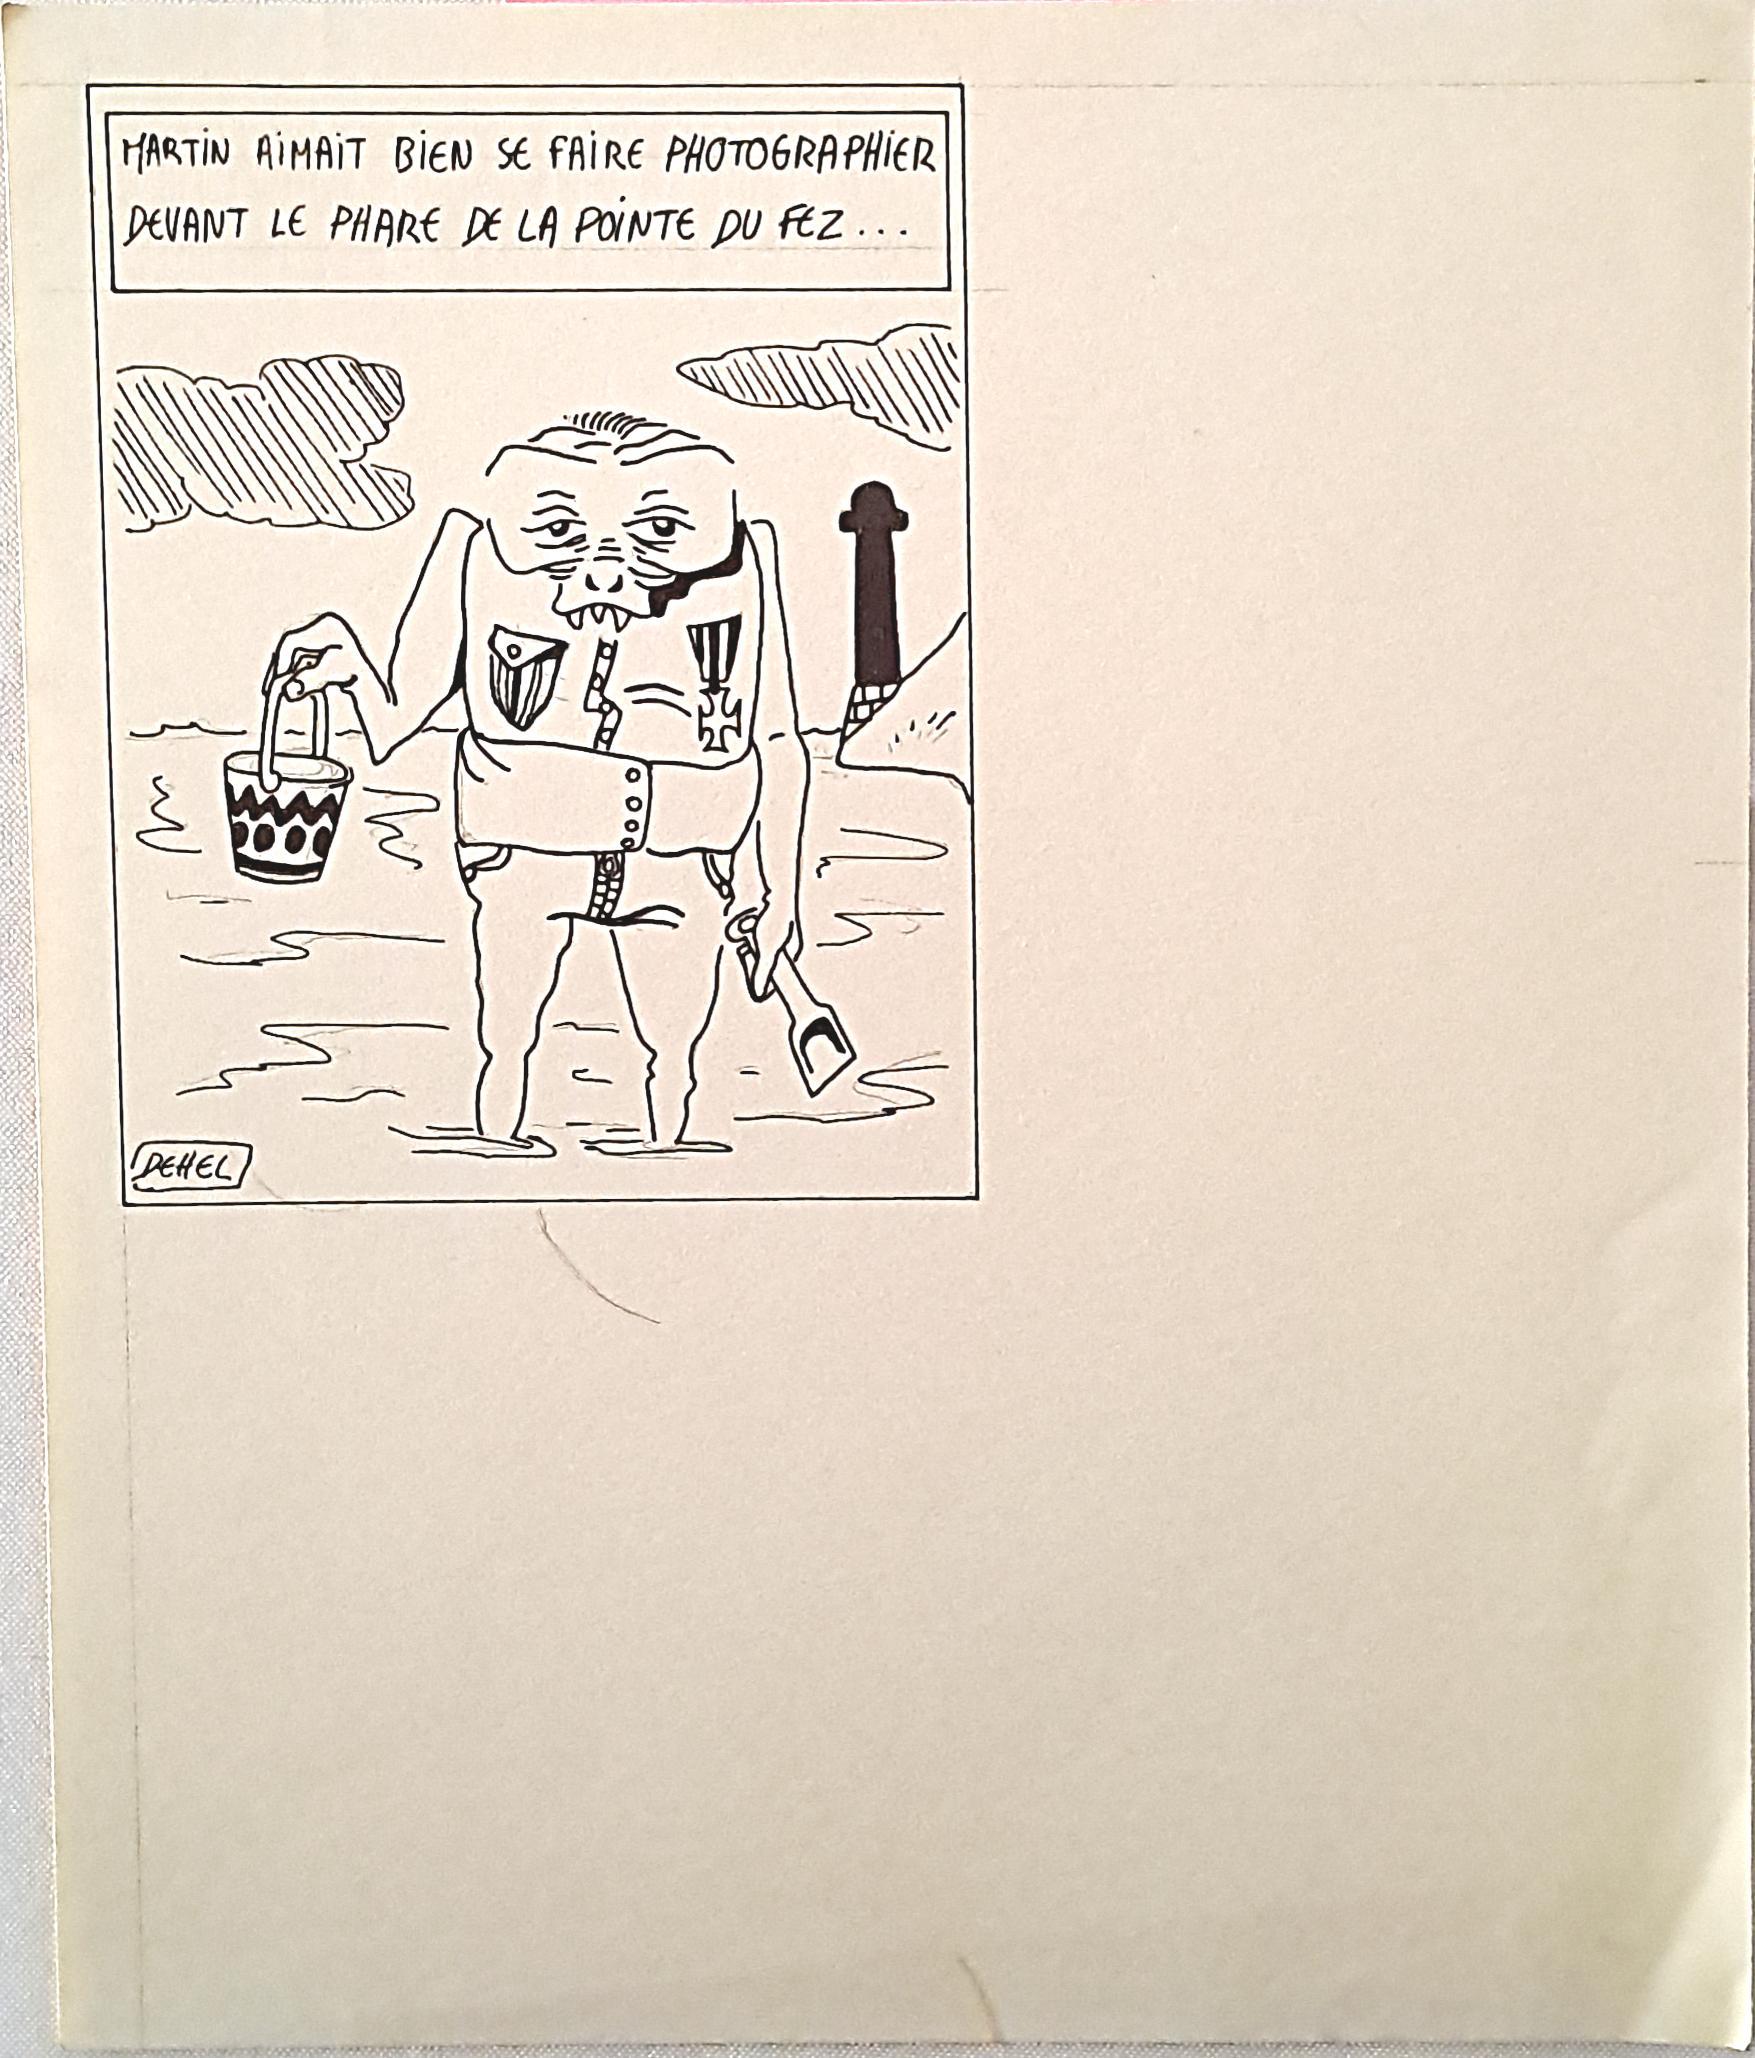 MARTIN AIMAIT BIEN SE FAIRE PHOTOGRAPHIER
DEVANT LE PHARE DE LA POINTE DU FEZ...
DEHEL